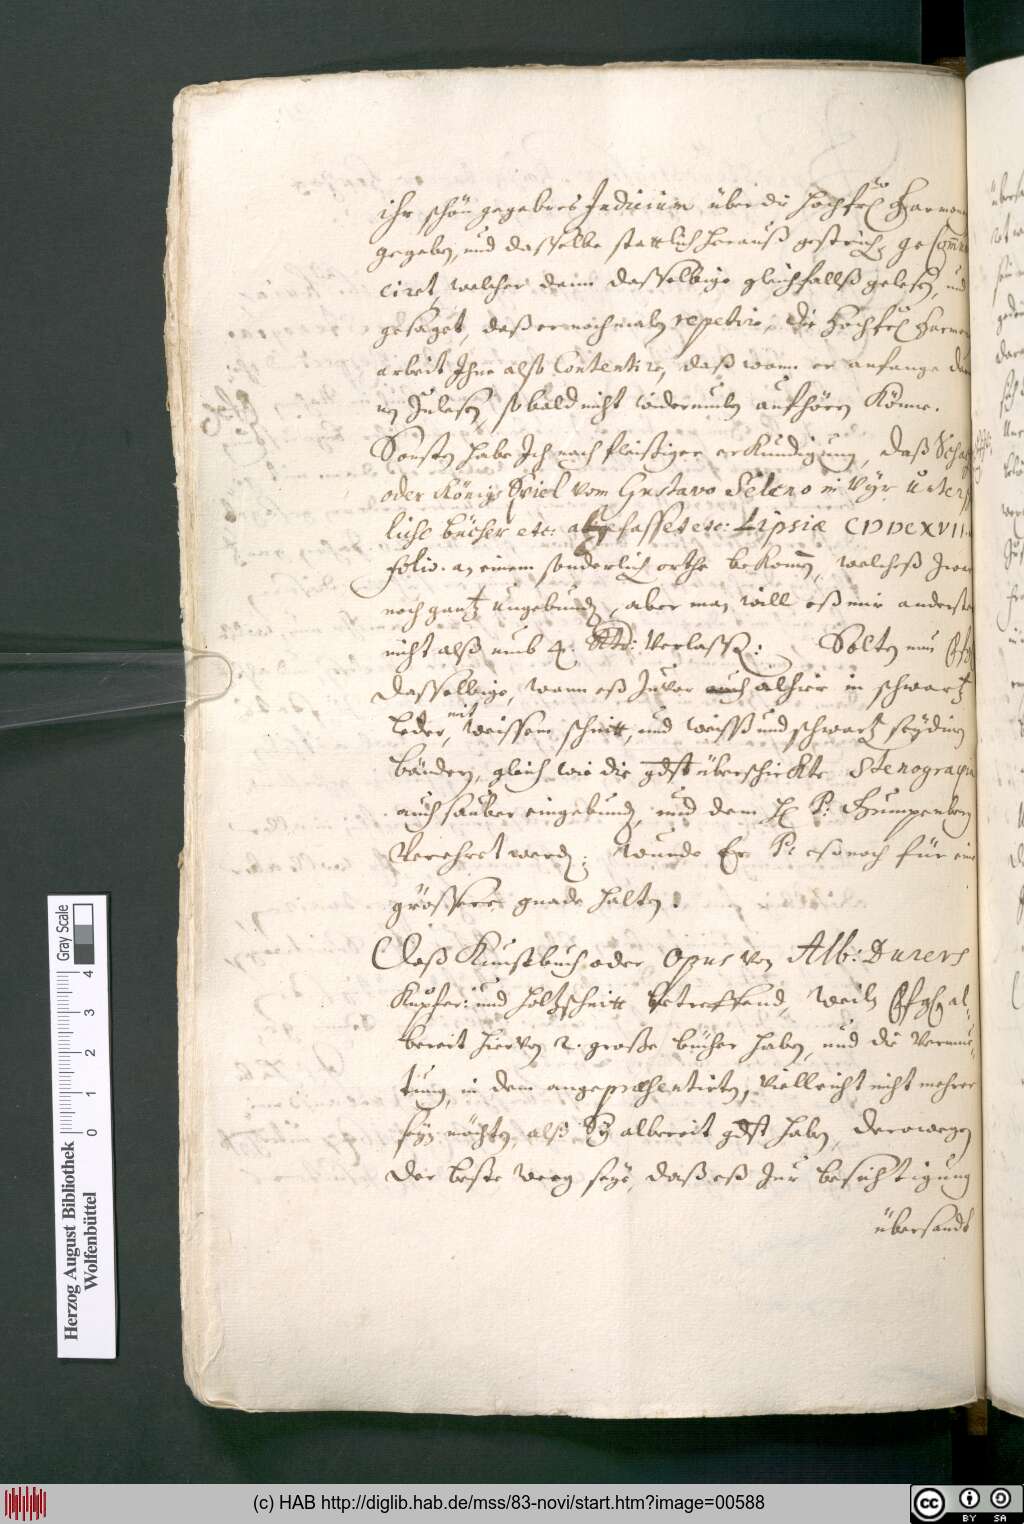 ihr schön gegebnes Judicium über die hochfrl Harmon
gegeben, und dasselbe stattlich herauß gestrich, ge Com̅u
ciret, welcher dann dasselbige gleichfallß gelesen, und
gesaget, daß er nochmaln repetire, die Hochfrl Harmon
arbeit Ihne also Contentire, daß wann er anfange dar
in Zulesen, so bald nicht widerumb aufhören Könne.
Sonsten habe Ich nach fleissiger erKundigung, daß Schach
oder Königs Spiel vom Gustavo Seleno in Vier Unter
liche bücher etc: abgefasset etc: Lipsiæ CIƆ IƆC XVII.
folio. an einem sonderlich orthe beKommen, welcheß Zwar
noch gantz ungebunden, aber man will eß mir anderster
nicht alß umb 4. Rtr: Verlassen: Solten nun EfG
dasselbige, wann eß Zuvor auch alhier in schwartz
leder, mit weissem schnitt, und weiß und schwartz seydinen
bänden, gleich wie die gdst überschickte Stenographi
auch sauber eingebunden, und dem H P: Gumpenberg
Verehret werden; wurde Er P: eß noch für eine
grössere gnade halten.
Daß Kunstbuch oder Opus von Alb: Durers
Kupfer: und holtzschnitt betreffend, weiln EfgG al-
bereit hiervon 2. große bücher haben, und die Vermu-
tung, in dem angepræsentirten, Vielleicht nicht mehrer
sein möchten, alß Sy albereit gdst haben, derowegen
der beste weeg seye, daß eß Zur besichtigung
übersandt
Herzog August Bibliothek
Wolfenbüttel
Gray Scale
0 1 2 3 4
(c) HAB http://diglib.hab.de/mss/83-novi/start.htm?image=00588
cc BY SA